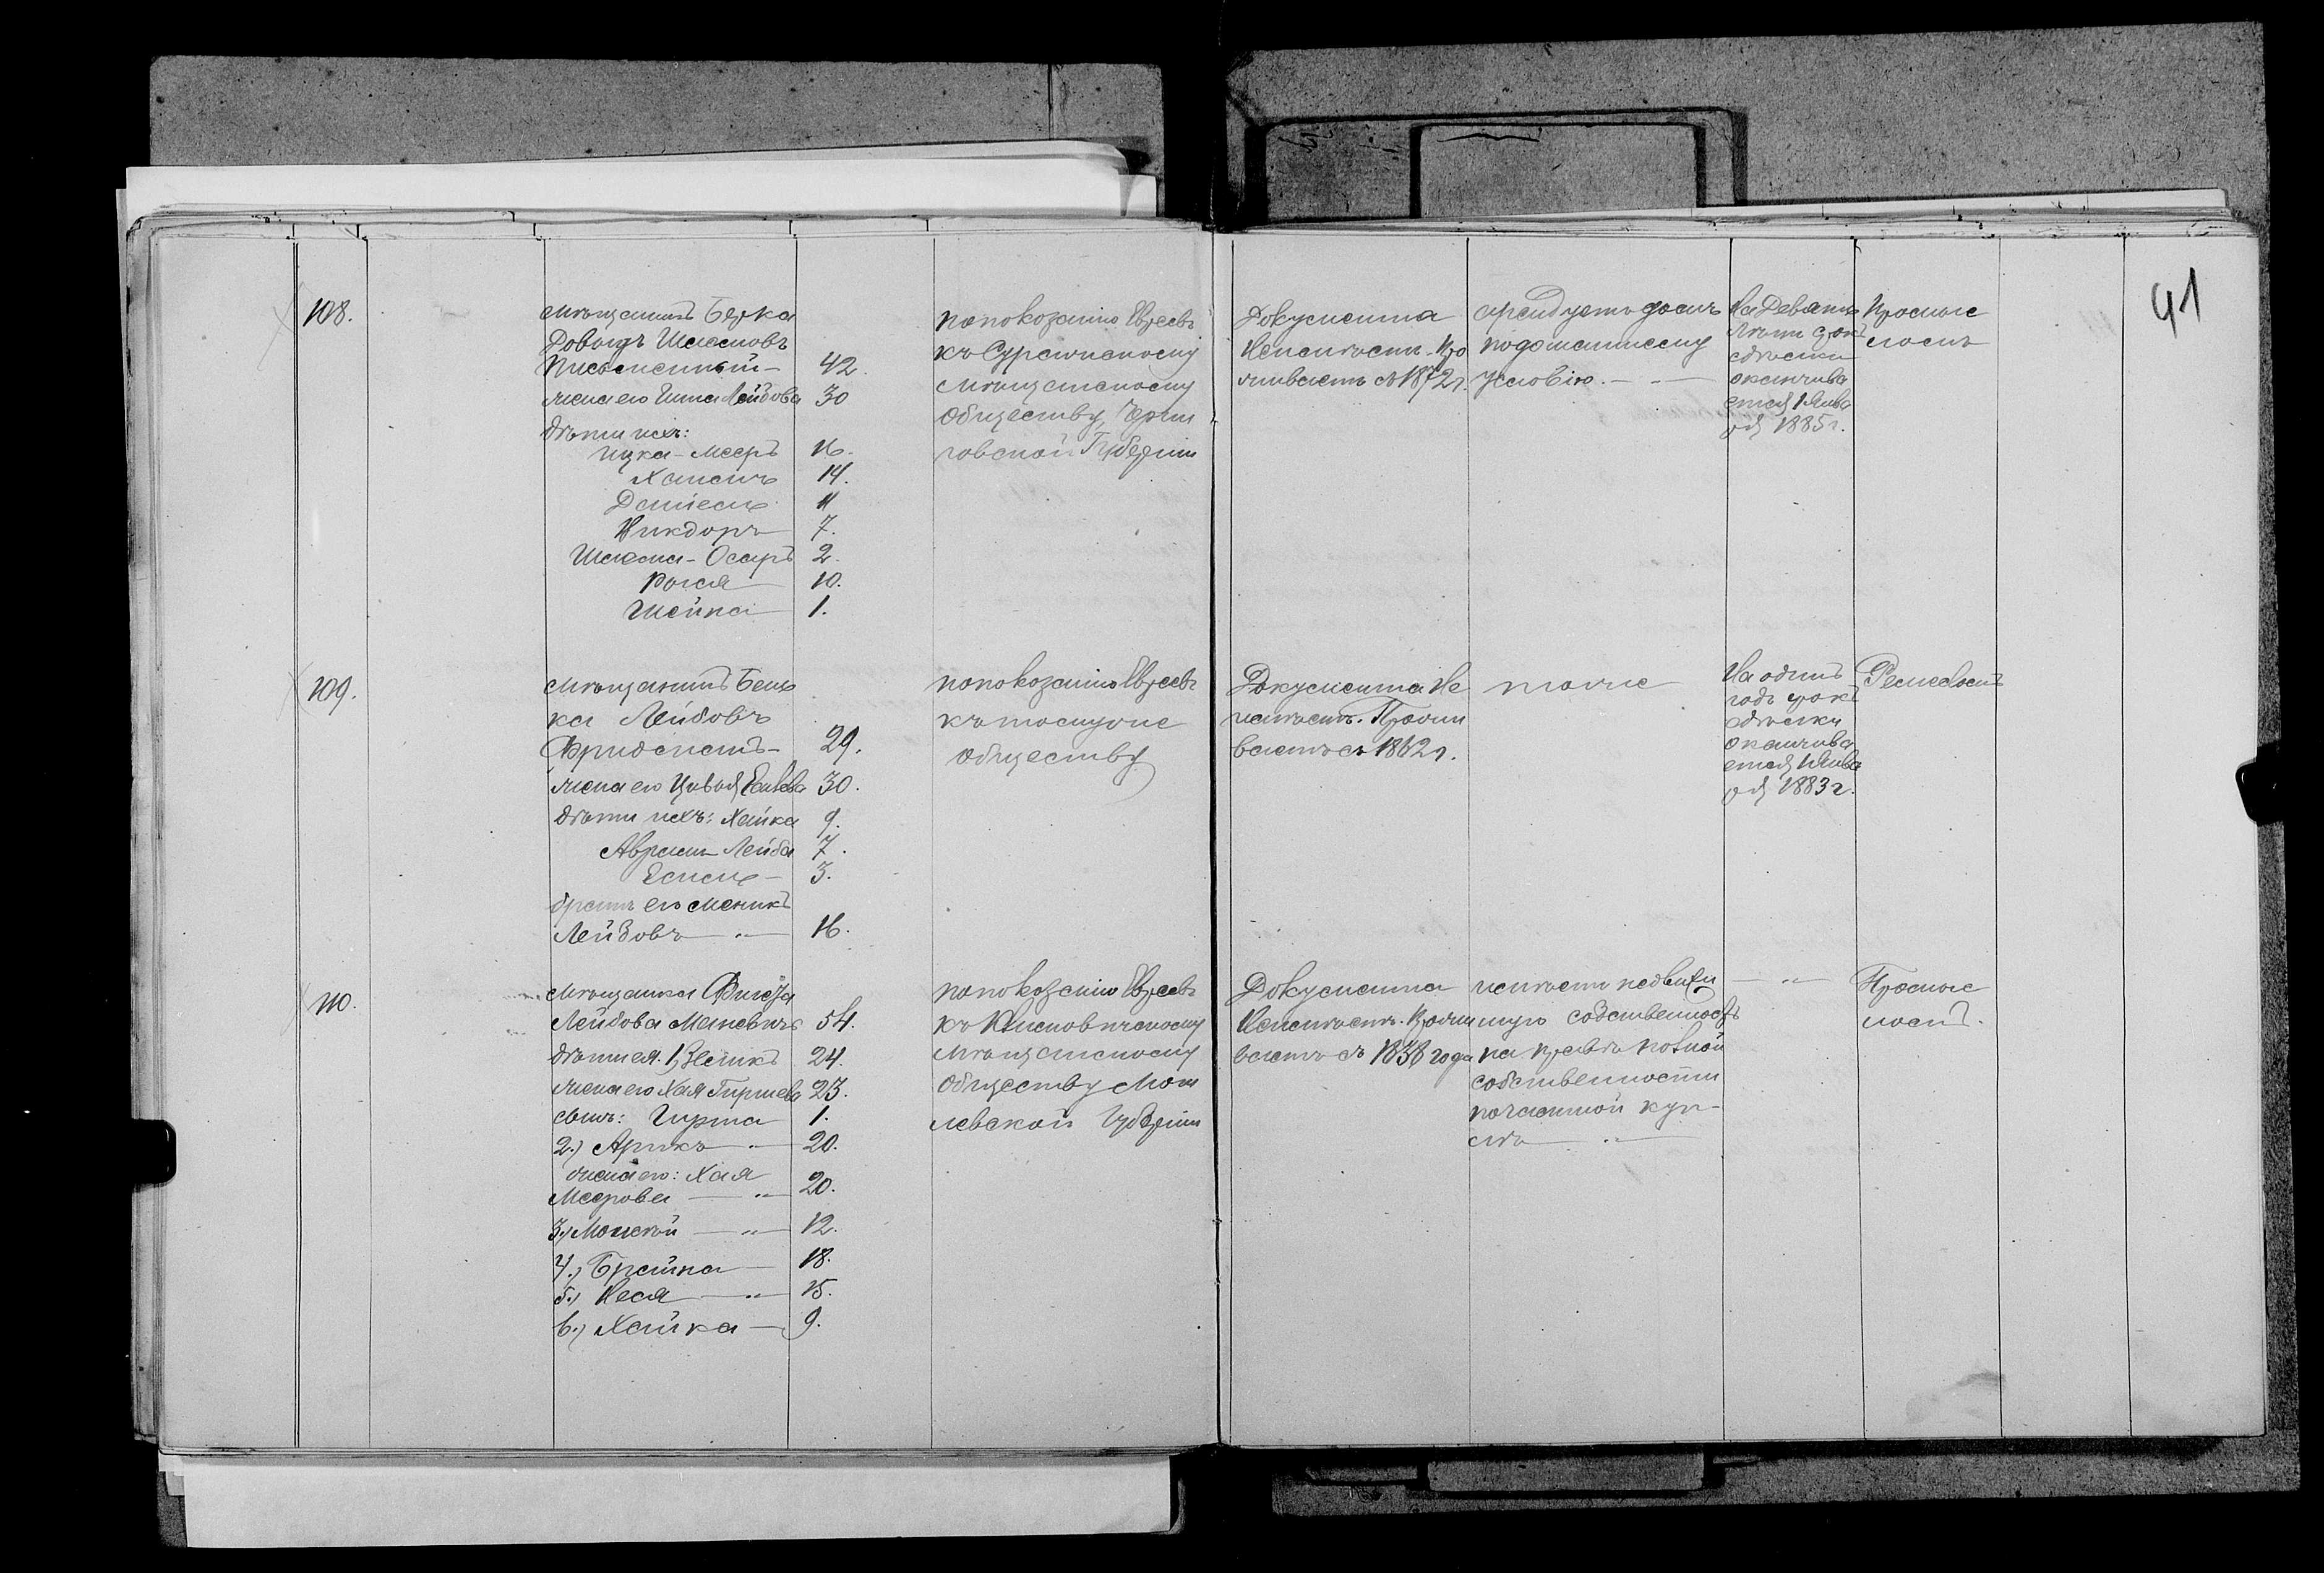 41
108.
Мѣщанинъ Берка
Довыдъ Шлемовъ
Письменный — 42.
жена его Лейбова 30
дѣти ихъ:
Ицка-Мееръ 16.
Хаимъ 14.
Даніель 11
Никдоръ 7.
Шлема-Осеръ 2.
Рися 10.
Шейна 1.
по показанію Евреевъ
къ Суражскому
Мѣщанскому
обществу, Черни
говской Губерніи
Документа
Неимѣетъ. Про
живаетъ съ 1872 г.
арендуетъ домъ
по домашнему
условію. —
На Девять
лѣтъ срокъ
сдѣлки
оканчива
ется 1 Янва
ря 1885 г.
Промыс
ломъ
109.
Мѣщанинъ Бень
ка Лейбовъ
Фридманъ — 29.
жена его Цивья 30.
дѣти ихъ: Хайка 9.
Аврамъ Лейба 7.
3.
братъ его Меникъ
Лейбовъ — " — 16.
по показанію Евреевъ
къ томуже
обществу
Документа Не
имѣетъ. Прожи
ваетъ съ 1862 г.
тоже
На одинъ
годъ срокъ
сдѣлки
оканчива
ется 1 Янва
ря 1883 г.
Ремесломъ
110.
Мѣщанка
Лейбова Маневичъ 54.
дѣти ея. 1) Зеликъ 24.
жена его Хая Гиршева 23.
сынъ: Гирша 1.
2.) Арикъ — " 20.
жена его: Хая
Меерова — " — 20.
3.) — " — 12.
4.) Брайна — 18.
5.) Неся — " — 15.
6.) Хайка — 9.
по показанію Евреевъ
къ Климовичскому
Мѣщанскому
обществу Моги
левской Губерніи
Документа
Неимѣетъ. Прожи
ваетъ съ 1838 года
имѣетъ недвижи
мую собственность
на правѣ полной
собственности
по частной куп-
лѣ — " —
— " —
Промыс
ломъ.